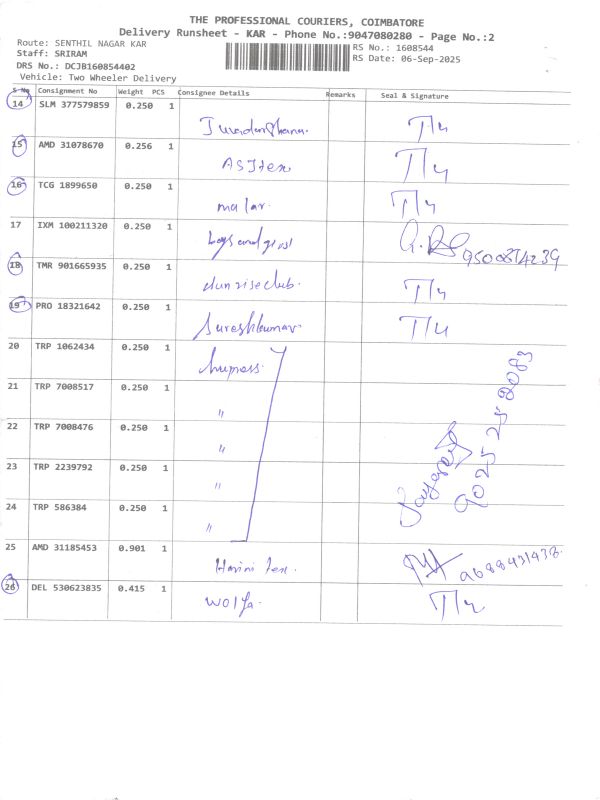 THE PROFESSIONAL COURIERS, COIMBATORE
Delivery Runsheet - KAR - Phone No.:9047080280 - Page No.:2
Route: SENTHIL NAGAR KAR
Staff: SRIRAM
DRS No.: DCJB160854402
Vehicle: Two Wheeler Delivery
RS No.: 1608544
RS Date: 06-Sep-2025
S No Consignment No Weight PCS Consignee Details Remarks Seal & Signature
14 SLM 377579859 0.250 1
T/4
15 AMD 31078670 0.256 1
T/4
16 TCG 1899650 0.250 1
malar. T/4
17 IXM 100211320 0.250 1
boys and girls 9500874239
18 TMR 901665935 0.250 1
sunriseclub. T/4
19 PRO 18321642 0.250 1
Sureshkumar T/4
20 TRP 1062434 0.250 1
21 TRP 7008517 0.250 1
"
22 TRP 7008476 0.250 1
"
23 TRP 2239792 0.250 1
"
24 TRP 586384 0.250 1
"
9025252083
25 AMD 31185453 0.901 1
Harini tex. 9688431438.
26 DEL 530623835 0.415 1
T/4